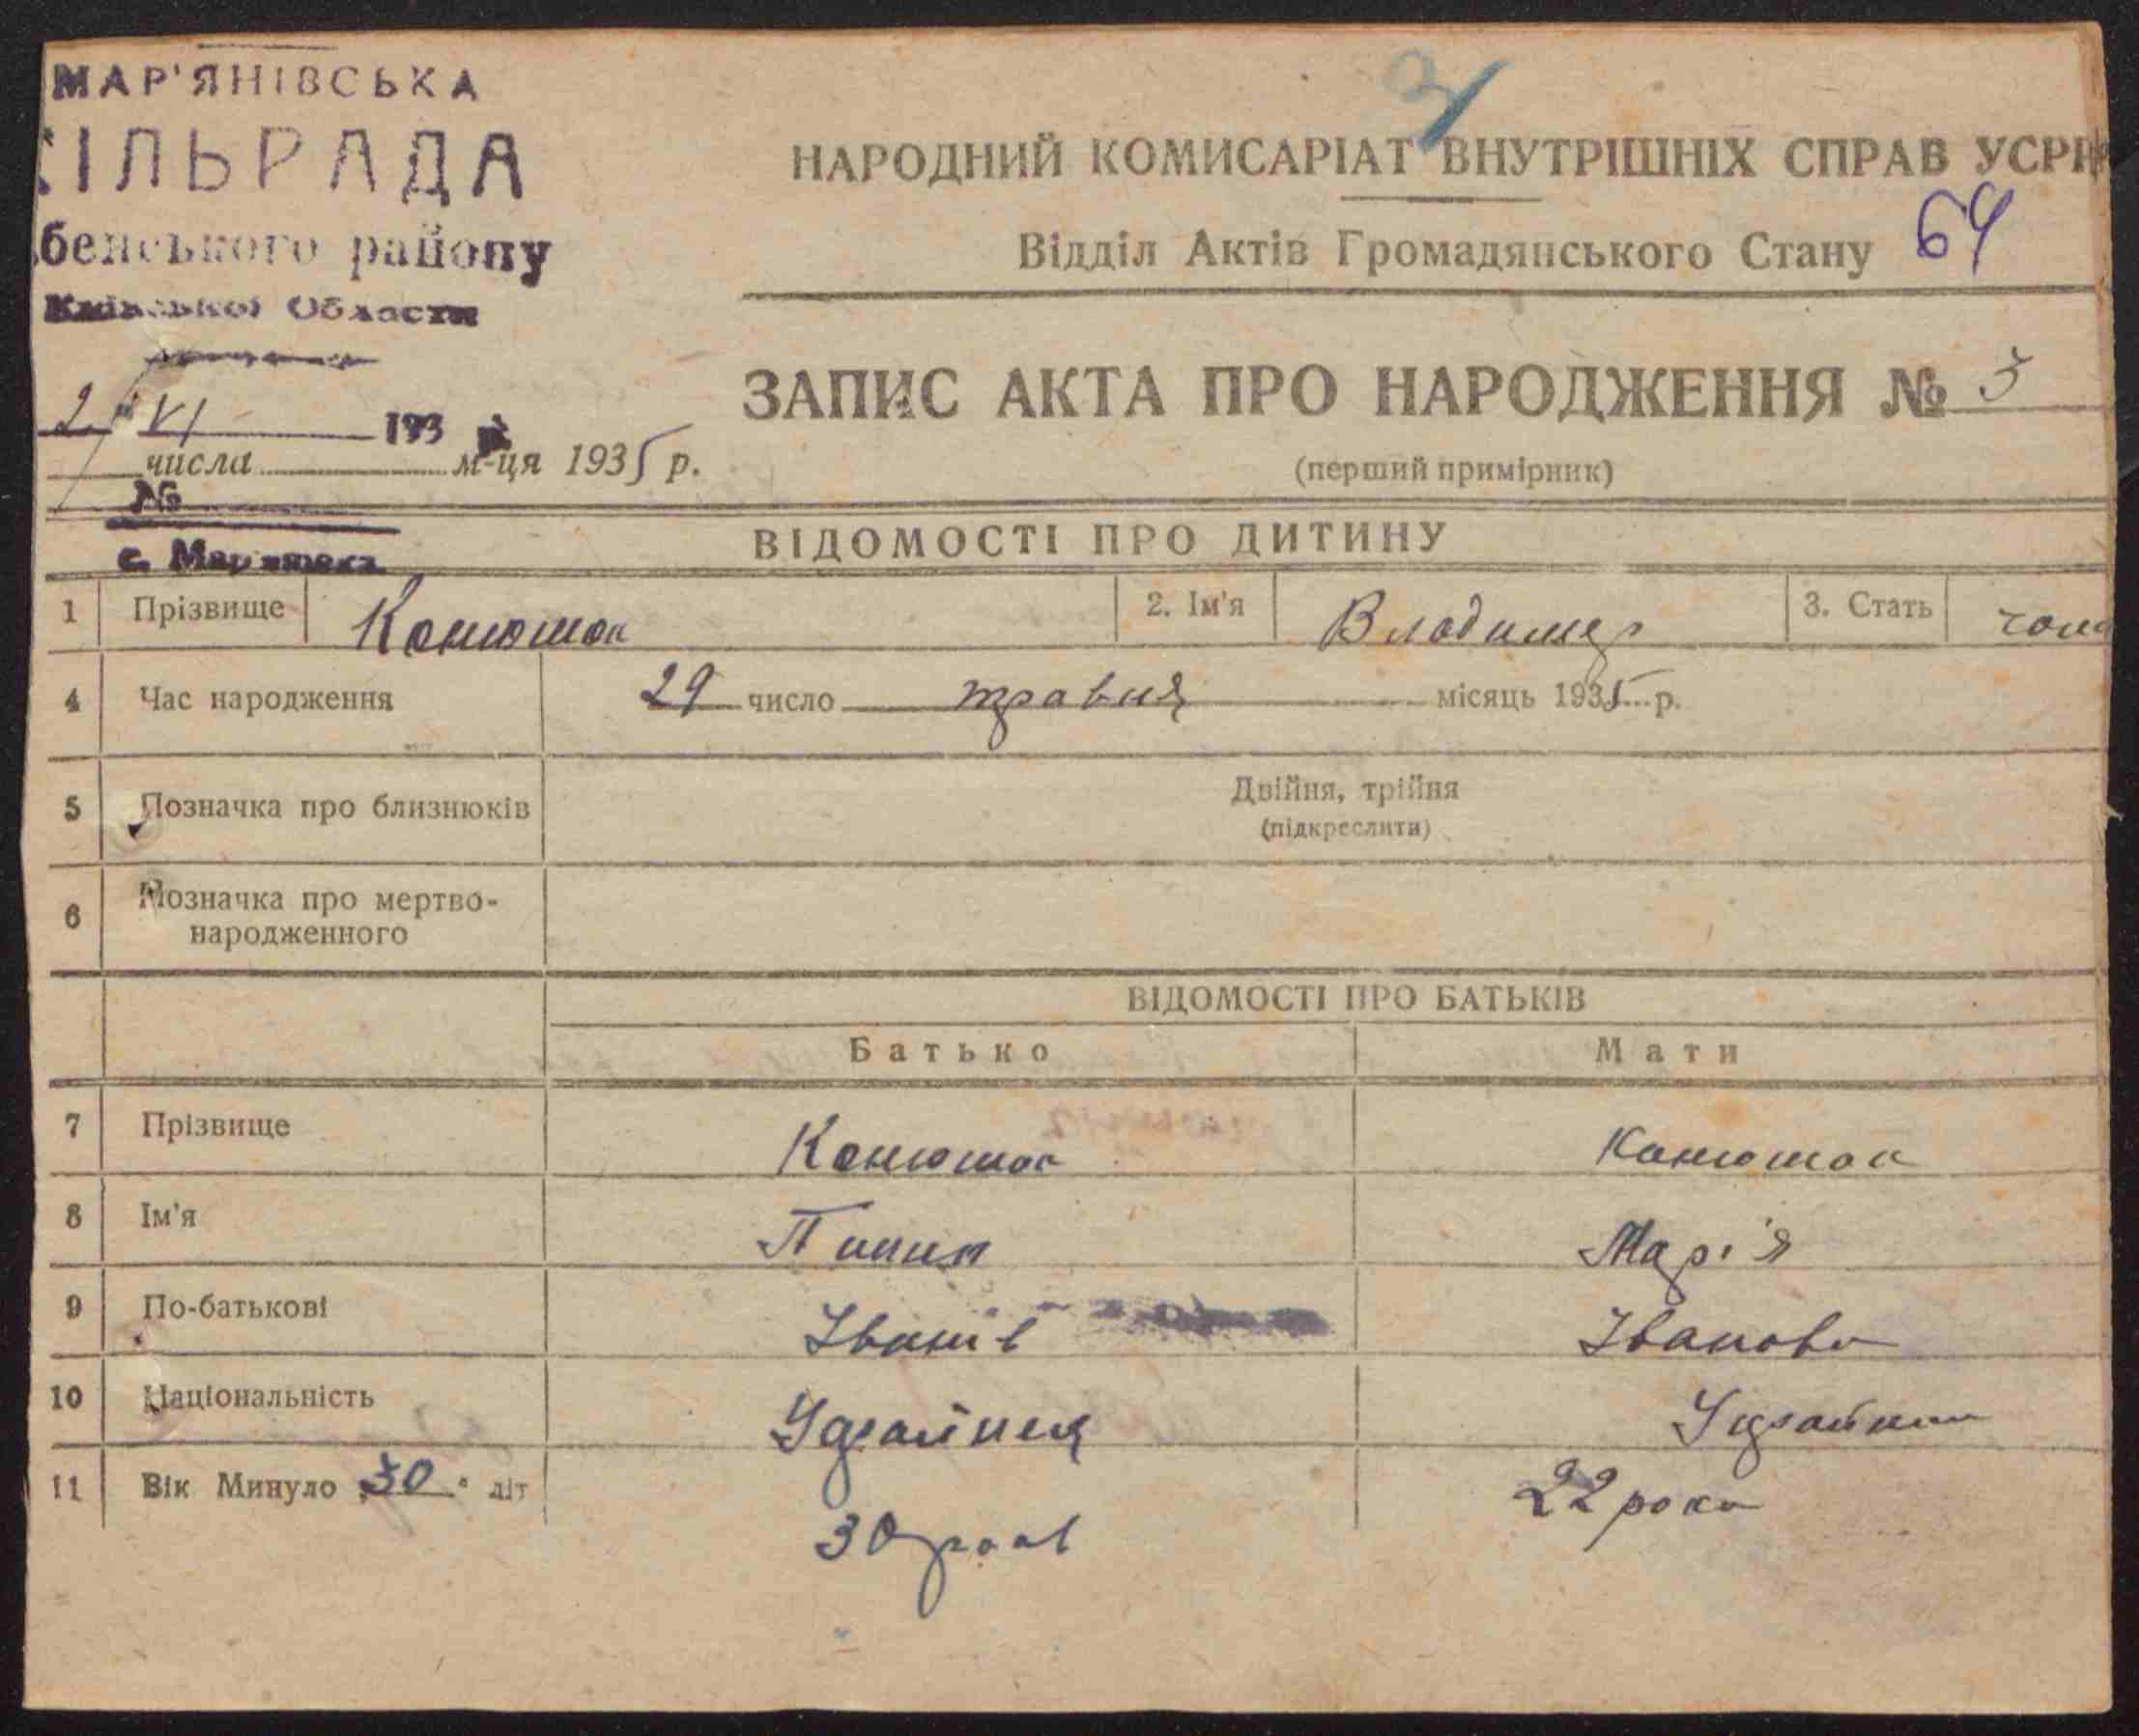 МАР'ЯНІВСЬКА
ІЛЬРАДА
бенського району
Київської Области
2 VI 193
числа м-ця 1935 р.
№
с. Мар'янівка
НАРОДНИЙ КОМИСАРІАТ ВНУТРІШНІХ СПРАВ УСРР
Відділ Актів Громадянського Стану 64
ЗАПИС АКТА ПРО НАРОДЖЕННЯ № 3
(перший примірник)
ВІДОМОСТІ ПРО ДИТИНУ
1 Прізвище Конюшок 2. Ім'я Владимер 3. Стать чол
4 Час народження 29 число травня місяць 1935 р.
5 Позначка про близнюків Двійня, трійня
(підкреслити)
6 Позначка про мертво-
народженного
ВІДОМОСТІ ПРО БАТЬКІВ
Батько Мати
7 Прізвище Конюшок Конюшок
8 Ім'я Пилип Марія
9 По-батькові Іванів Іванова
10 Національність Українец Українка
11 Вік Минуло 30 літ 22 роки
30 років